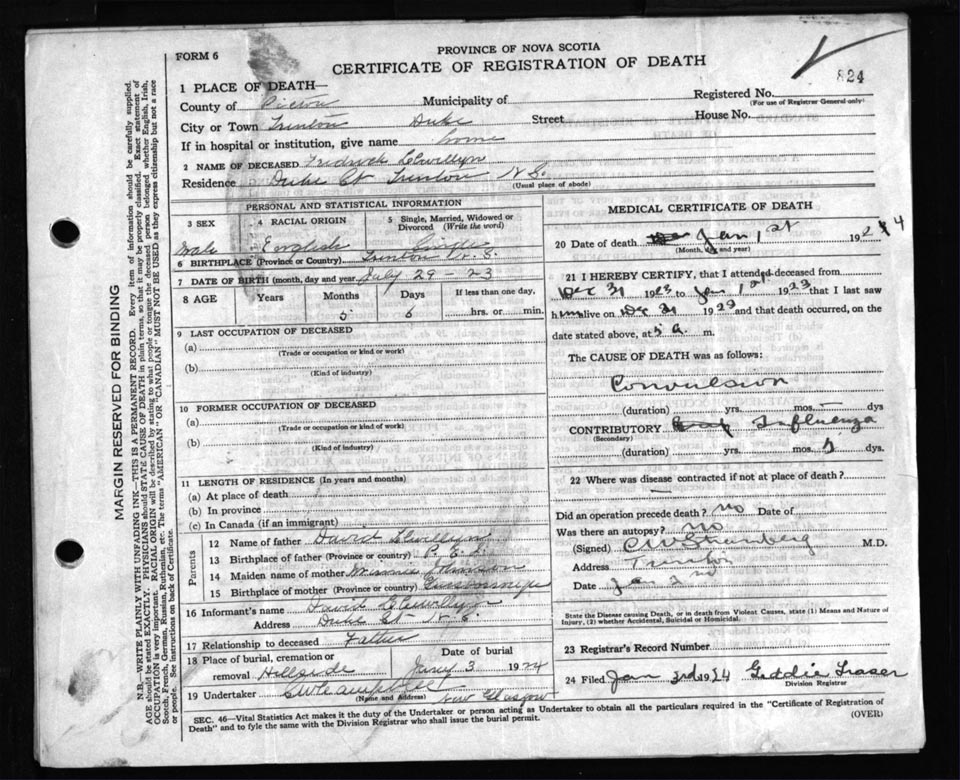 FORM 6
PROVINCE OF NOVA SCOTIA
CERTIFICATE OF REGISTRATION OF DEATH
824
1 PLACE OF DEATH—
County of Pictou Municipality of
Registered No.
(For use of Registrar General only)
City or Town Trenton Duke Street House No.
If in hospital or institution, give name home
2 NAME OF DECEASED Fredrick Llewellyn
Residence Duke St Trenton N.S.
(Usual place of abode)
PERSONAL AND STATISTICAL INFORMATION
3 SEX 4 RACIAL ORIGIN 5 Single, Married, Widowed or Divorced (Write the word)
Male English Single
6 BIRTHPLACE (Province or Country) Trenton N.S.
7 DATE OF BIRTH (month, day and year) July 29 - 23
8 AGE Years Months Days If less than one day,
5 6 hrs. or min.
9 LAST OCCUPATION OF DECEASED
(a)
(Trade or occupation or kind or work)
(b)
(Kind of industry)
10 FORMER OCCUPATION OF DECEASED
(a)
(Trade or occupation or kind of work)
(b)
(Kind of industry)
11 LENGTH OF RESIDENCE (In years and months)
(a) At place of death
(b) In province
(c) In Canada (if an immigrant)
Parents
12 Name of father David Llewellyn
13 Birthplace of father (Province or country) P.E.I.
14 Maiden name of mother Minnie Johnson
15 Birthplace of mother (Province or country)
16 Informant's name David Llewellyn
Address Duke St N.S.
17 Relationship to deceased Father
18 Place of burial, cremation or removal Hillside
Date of burial
Jany 3 1924
19 Undertaker New Glasgow
(Name and Address)
MEDICAL CERTIFICATE OF DEATH
20 Date of death Jan 1st 1924
(Month, day and year)
21 I HEREBY CERTIFY, that I attended deceased from
Dec 31 1923 to Jan 1st 1923 that I last saw
him alive on Dec 31 1923 and that death occurred, on
date stated above, at 5 a. m.
The CAUSE OF DEATH was as follows:
Convulsion
(duration) yrs. mos. dys
CONTRIBUTORY Influenza
(Secondary)
(duration) yrs. mos. dys.
22 Where was disease contracted if not at place of death?
Did an operation precede death? no Date of
Was there an autopsy? no
(Signed) M.D.
Address Trenton
Date Jan 2nd
State the Disease causing Death, or in death from Violent Causes, state (1) Means and Nature of
Injury, (2) whether Accidental, Suicidal or Homicidal.
23 Registrar's Record Number
24 Filed Jan 3rd 1924
Division Registrar
SEC. 46—Vital Statistics Act makes it the duty of the Undertaker or person acting as Undertaker to obtain all the particulars required in the "Certificate of Registration of
Death" and to fyle the same with the Division Registrar who shall issue the burial permit.
(OVER)
MARGIN RESERVED FOR BINDING
N.B.—WRITE PLAINLY WITH UNFADING INK—THIS IS A PERMANENT RECORD. Every item of information should be carefully supplied.
AGE should be stated EXACTLY. PHYSICIANS should STATE CAUSE OF DEATH in plain terms, so that it may be properly classified. Exact statement of
OCCUPATION is very important. RACIAL ORIGIN will be described by stating to what people or tongue the deceased person belonged whether English, Irish,
Scotch, French, German, Russian, Ruthenian, etc. The terms "AMERICAN" OR "CANADIAN" MUST NOT BE USED as they express citizenship but not a race
or people. See instructions on back of Certificate.